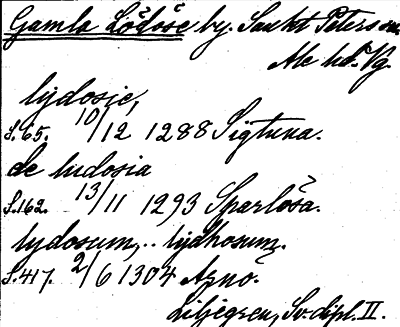 Gamla Lödöse by. Sankt Peters sn.
Ale hd. Vg.
lydosie,
S. 65. 10/12 1288 Sigtuna.
de ludosia
S. 162. 13/11 1293 Sparlösa.
lydosum, .. lydhosum.
S. 417. 2/6 1304 Arnö.
Liljegren, Sv. dipl. II.